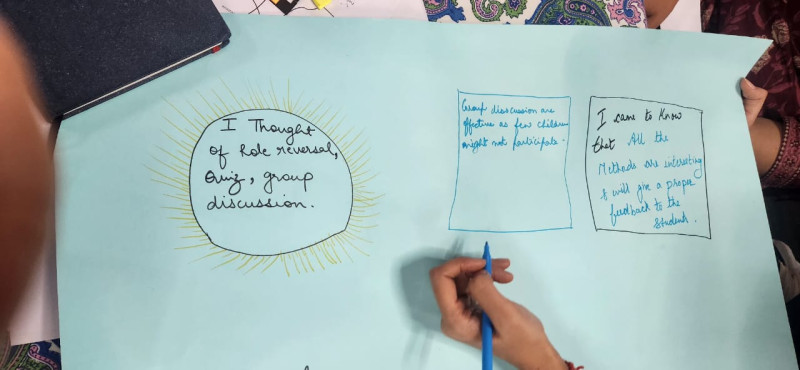 I Thought
of Role reversal,
Quiz, group
discussion.
Group disscussion are
effective as few children
might not participate.
I came to know
that All the
Methods are interesting
I will give a proper
feedback to the
Student.